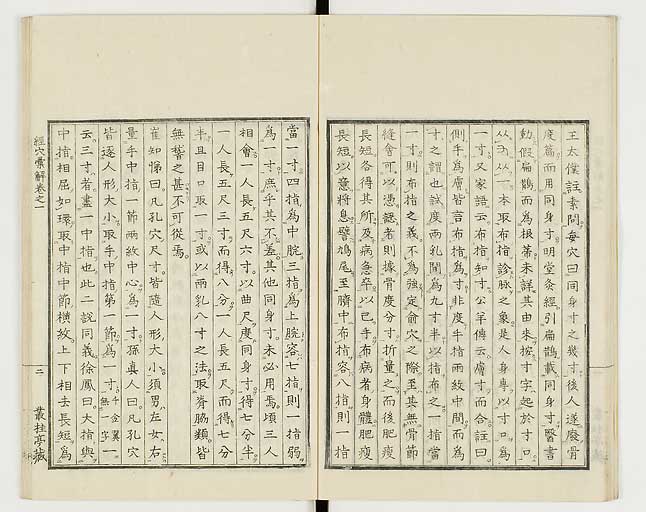 王太僕註素問每穴曰同身寸之幾寸後人遂廢骨
度篇而用同身寸明堂灸經引扁鵲載同身寸醫書
動假扁鵲而為根蒂未詳其由來按寸字起於寸口
从又从一本取布指診脉之象是人身專以寸口為
一寸又家語云布指知寸公羊傳云膚寸而合註曰
側手為膚皆言布指為寸非度手指兩紋中間而為
寸之謂也試度兩乳間為九寸半以指布之一指當
一寸則布指之義不為強定俞穴之際至其無骨節
縫會可以憑認者則據骨度分寸折量之而後肥瘦
長短各得其所及病急卒以已手布病者身體肥瘦
長短以意將息譬鳩尾至臍中布指容八指則一指
當一寸四指為中脘三指為上脘容七指則一指弱
為一寸庶乎其不差其他同身寸未必用焉頃三人
相會一人長五尺六寸以曲尺度同身寸得七分半
一人長五尺三寸而得八分一人長五尺而得七分
半且目口取一寸或以兩乳八寸之法取脊脇類皆
無誓之甚不可從焉
崔知悌曰凡孔穴尺寸皆隨人形大小須男左女右
量手中指一節兩紋中心為一寸孫真人曰凡孔穴
皆逐人形大小取手中指第一節為一寸千金翼無一字
云三寸者盡一中指也此二說同義徐鳳曰大指與
中指相屈如環取中指中節橫紋上下相去長短為
經穴彙解卷之一
二
叢桂亭藏